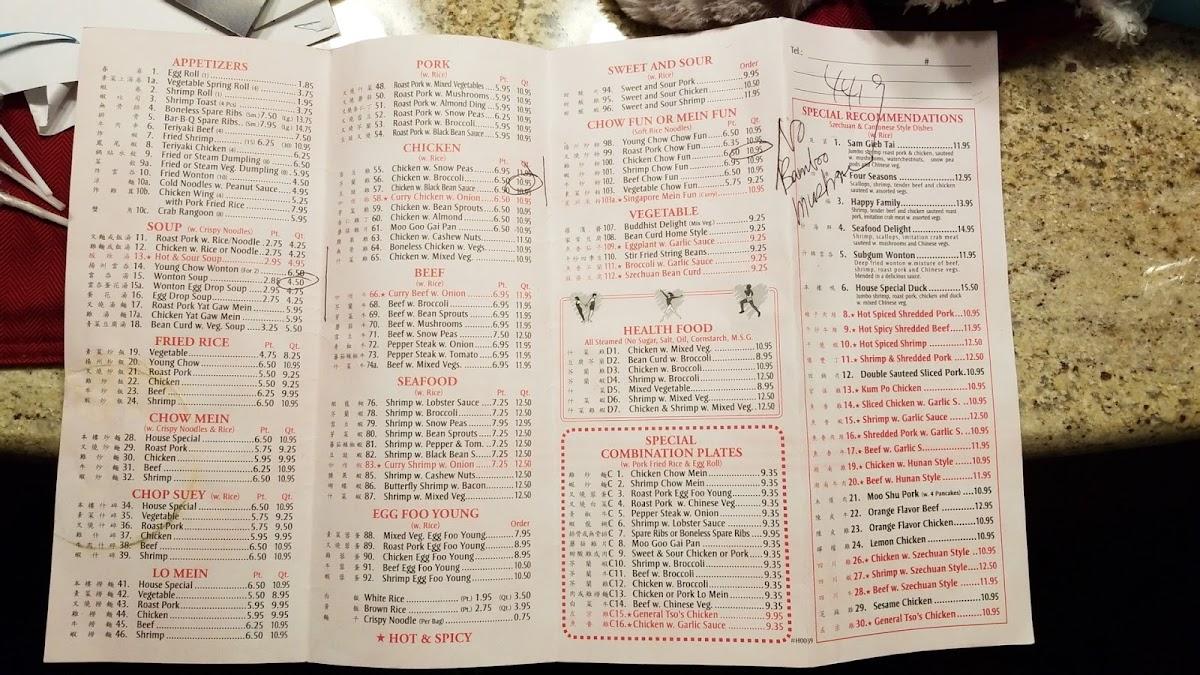 APPETIZERS
1. Egg Roll (1) 1.85
1a. Vegetable Spring Roll (4) 3.75
2. Shrimp Roll (1) 1.95
3. Shrimp Toast (4 Pcs) 3.75
4. Boneless Spare Ribs (Sm) 7.50 (Lg.) 13.75
5. Bar-B-Q Spare Ribs.. (Sm) 7.95 (Lg.) 14.75
6. Teriyaki Beef (4) 7.50
7. Fried Shrimp (15) 6.25 (30) 10.95
8. Teriyaki Chicken (4) 6.25
9. Fried or Steam Dumpling (8) 6.50
9a. Fried or Steam Veg. Dumpling (8) 5.95
10. Fried Wonton (10) 4.50
10a. Cold Noodles w. Peanut Sauce 4.95
10b. Chicken Wing (4) 5.25
with Pork Fried Rice 7.95
10c. Crab Rangoon (8) 5.95
SOUP (w. Crispy Noodles) Pt. Qt.
11. Roast Pork w. Rice/Noodle 2.75 4.25
12. Chicken w. Rice or Noodle 2.75 4.25
13.★ Hot & Sour Soup 2.95 4.95
14. Young Chow Wonton (For 2) 6.50
15. Wonton Soup 2.85 4.50
15a. Wonton Egg Drop Soup 2.95 4.75
16. Egg Drop Soup 2.75 4.25
17. Roast Pork Yat Gaw Mein 5.95
17a. Chicken Yat Gaw Mein 5.95
18. Bean Curd w. Veg. Soup 3.25 5.50
FRIED RICE Pt. Qt.
19. Vegetable 4.75 8.25
20. Young Chow 6.50 10.95
21. Roast Pork 5.50 9.25
22. Chicken 5.50 9.25
23. Beef 6.25 9.95
24. Shrimp 6.50 10.95
CHOW MEIN
(w. Crispy Noodles & Rice) Pt. Qt.
28. House Special 6.50 10.95
29. Roast Pork 5.75 9.25
30. Chicken 5.95 9.95
31. Beef 6.25 10.95
32. Shrimp 6.50 10.95
CHOP SUEY (w. Rice) Pt. Qt.
34. House Special 6.50 10.95
35. Vegetable 5.25 9.25
36. Roast Pork 5.75 9.50
37. Chicken 5.95 9.95
38. Beef 6.50 10.95
39. Shrimp 6.50 10.95
LO MEIN Pt. Qt.
41. House Special 6.50 10.95
42. Vegetable 5.50 8.95
43. Roast Pork 5.95 9.95
44. Chicken 5.95 9.95
45. Beef 6.25 10.95
46. Shrimp 6.50 10.95
PORK
(w. Rice) Pt. Qt.
48. Roast Pork w. Mixed Vegetables 5.95 10.95
50. Roast Pork w. Mushrooms 5.95 10.95
51. Roast Pork w. Almond Ding 5.95 10.95
52. Roast Pork w. Snow Peas 6.25 10.95
53. Roast Pork w. Broccoli 5.95 10.95
54. Roast Pork w. Black Bean Sauce 5.95 10.95
CHICKEN
(w. Rice) Pt. Qt.
55. Chicken w. Snow Peas 6.95 11.95
56. Chicken w. Broccoli 6.50 10.95
57. Chicken w. Black Bean Sauce 6.50 10.95
58.★ Curry Chicken w. Onion 6.50 10.95
59. Chicken w. Bean Sprouts 6.50 10.95
60. Chicken w. Almond 6.50 10.95
61. Moo Goo Gai Pan 6.50 10.95
63. Chicken w. Cashew Nuts 11.50
64. Boneless Chicken w. Vegs 10.95
65. Chicken w. Mixed Veg. 10.95
BEEF
(w. Rice) Pt. Qt.
66.★ Curry Beef w. Onion 6.95 11.95
68. Beef w. Broccoli 6.95 11.95
69. Beef w. Bean Sprouts 6.95 11.95
70. Beef w. Mushrooms 6.95 11.95
71. Beef w. Snow Peas 7.50 12.50
72. Pepper Steak w. Onion 6.95 11.95
73. Pepper Steak w. Tomato 6.95 11.95
74a. Beef w. Mixed Vegs. 6.95 11.95
SEAFOOD
(w. Rice) Pt. Qt.
76. Shrimp w. Lobster Sauce 7.25 12.50
78. Shrimp w. Broccoli 7.25 12.50
79. Shrimp w. Snow Peas 7.95 12.95
80. Shrimp w. Bean Sprouts 7.25 12.50
81. Shrimp w. Pepper & Tom. 7.25 12.50
82. Shrimp w. Black Bean S. 7.25 12.50
83.★ Curry Shrimp w. Onion 7.25 12.50
85. Shrimp w. Cashew Nuts 12.50
86. Butterfly Shrimp w. Bacon 12.50
87. Shrimp w. Mixed Veg. 12.50
EGG FOO YOUNG
(w. Rice) Order
88. Mixed Veg. Egg Foo Young 7.95
89. Roast Pork Egg Foo Young 8.95
90. Chicken Egg Foo Young 8.95
91. Beef Egg Foo Young 10.50
92. Shrimp Egg Foo Young 10.50
White Rice (Pt.) 1.95 (Qt.) 3.50
Brown Rice (Pt.) 2.75 (Qt.) 3.95
Crispy Noodle (Per Bag) 0.75
★ HOT & SPICY
SWEET AND SOUR
(w. Rice) Order
94. Sweet and Sour Pork 9.95
95. Sweet and Sour Chicken 10.50
96. Sweet and Sour Shrimp 11.95
CHOW FUN OR MEIN FUN
(Soft Rice Noodles) Pt. Qt.
98. Young Chow Chow Fun 6.50 10.95
99. Roast Pork Chow Fun 6.35 10.95
100. Chicken Chow Fun 6.50 10.95
101. Shrimp Chow Fun 6.95 10.95
102. Beef Chow Fun 6.50 10.95
103. Vegetable Chow Fun 5.75 9.25
103a.★ Singapore Mein Fun (Curry) 10.95
VEGETABLE
107. Buddhist Delight (Mix Veg.) 9.25
108. Bean Curd Home Style 9.25
109.★ Eggplant w. Garlic Sauce 9.25
110. Stir Fried String Beans 9.25
111.★ Broccoli w. Garlic Sauce 9.25
112.★ Szechuan Bean Curd 9.25
HEALTH FOOD
All Steamed (No Sugar, Salt, Oil, Cornstarch, M.S.G.
D1. Chicken w. Mixed Veg. 10.95
D2. Bean Curd w. Broccoli 8.95
D3. Chicken w. Broccoli 10.95
D4. Shrimp w. Broccoli 12.50
D5. Mixed Vegetable 8.95
D6. Shrimp w. Mixed Veg 12.50
D7. Chicken & Shrimp w. Mixed Veg. 12.50
SPECIAL
COMBINATION PLATES
(w. Pork Fried Rice & Egg Roll)
C 1. Chicken Chow Mein 9.35
C 2. Shrimp Chow Mein 9.35
C 3. Roast Pork Egg Foo Young 9.35
C 4. Roast Pork w. Chinese Veg. 9.35
C 5. Pepper Steak w. Onion 9.35
C 6. Shrimp w. Lobster Sauce 9.35
C 7. Spare Ribs or Boneless Spare Ribs 9.95
C 8. Moo Goo Gai Pan 9.35
C 9. Sweet & Sour Chicken or Pork 9.35
C10. Shrimp w. Broccoli 9.35
C11. Beef w. Broccoli 9.35
C12. Chicken w. Broccoli 9.35
C13. Chicken or Pork Lo Mein 9.35
C14. Beef w. Chinese Veg. 9.35
C15.★ General Tso's Chicken 9.95
C16.★ Chicken w. Garlic Sauce 9.35
Tel.: #
4419
No
Bamboo
SPECIAL RECOMMENDATIONS
Szechuan & Cantonese Style Dishes
(w. Rice)
1. Sam Gieb Tai 11.95
Jumbo shrimp roast pork & chicken, sauteed w. mushrooms, waterchestnuts, snow peas and Chinese veg.
Four Seasons 12.95
Scallops, shrimp, tender beef and chicken sauteed w. assorted vegs.
3. Happy Family 13.95
Shrimp, tender beef and chicken sauteed roast pork, imitation crab meat w. assorted vegs.
4. Seafood Delight 14.95
Shrimp, scallops, imitation crab meat sauteed w. mushrooms and Chinese vegs.
5. Subgum Wonton 11.95
Deep fried wonton w. mixture of beef, shrimp, roast pork and Chinese vegs. blended in a delicious sauce.
6. House Special Duck 15.50
Jumbo shrimp, roast pork, chicken and duck w. mixed Chinese veg.
8.★ Hot Spiced Shredded Pork 10.95
9.★ Hot Spicy Shredded Beef 11.95
10.★ Hot Spiced Shrimp 12.50
11.★ Shrimp & Shredded Pork 12.50
12. Double Sauteed Sliced Pork 10.95
13.★ Kum Po Chicken 10.95
14.★ Sliced Chicken w. Garlic S. 10.95
15.★ Shrimp w. Garlic Sauce 12.50
16.★ Shredded Pork w. Garlic S. 10.95
17.★ Beef w. Garlic S. 11.95
19.★ Chicken w. Hunan Style 10.95
20.★ Beef w. Hunan Style 11.95
21. Moo Shu Pork (w. 4 Pancakes) 10.95
22. Orange Flavor Beef 12.95
23. Orange Flavor Chicken 10.95
24. Lemon Chicken 10.95
26.★ Chicken w. Szechuan Style 10.95
27.★ Shrimp w. Szechuan Style 12.50
28.★ Beef w. Szechuan Style 11.95
29. Sesame Chicken 10.95
30.★ General Tso's Chicken 10.95
#H0039